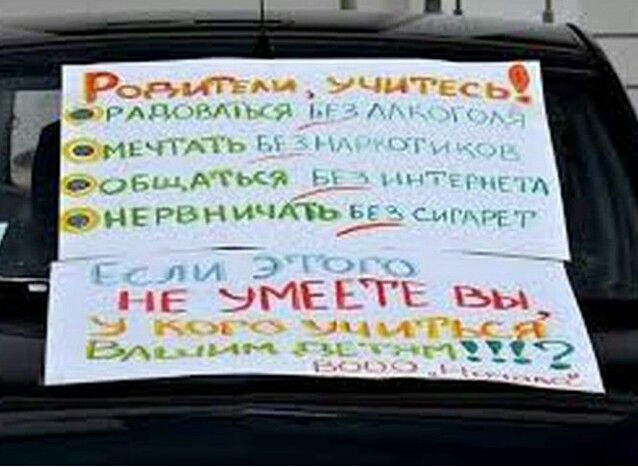 Родители, учитесь!
РАДОВАТЬСЯ БЕЗ АЛКОГОЛЯ
МЕЧТАТЬ БЕЗ НАРКОТИКОВ
ОБЩАТЬСЯ БЕЗ ИНТЕРНЕТА
НЕРВНИЧАТЬ БЕЗ СИГАРЕТ
Если этого
НЕ УМЕЕТЕ ВЫ,
У КОГО УЧИТЬСЯ
ВАШИМ ДЕТЯМ!!!?
ВОДО „Начало"